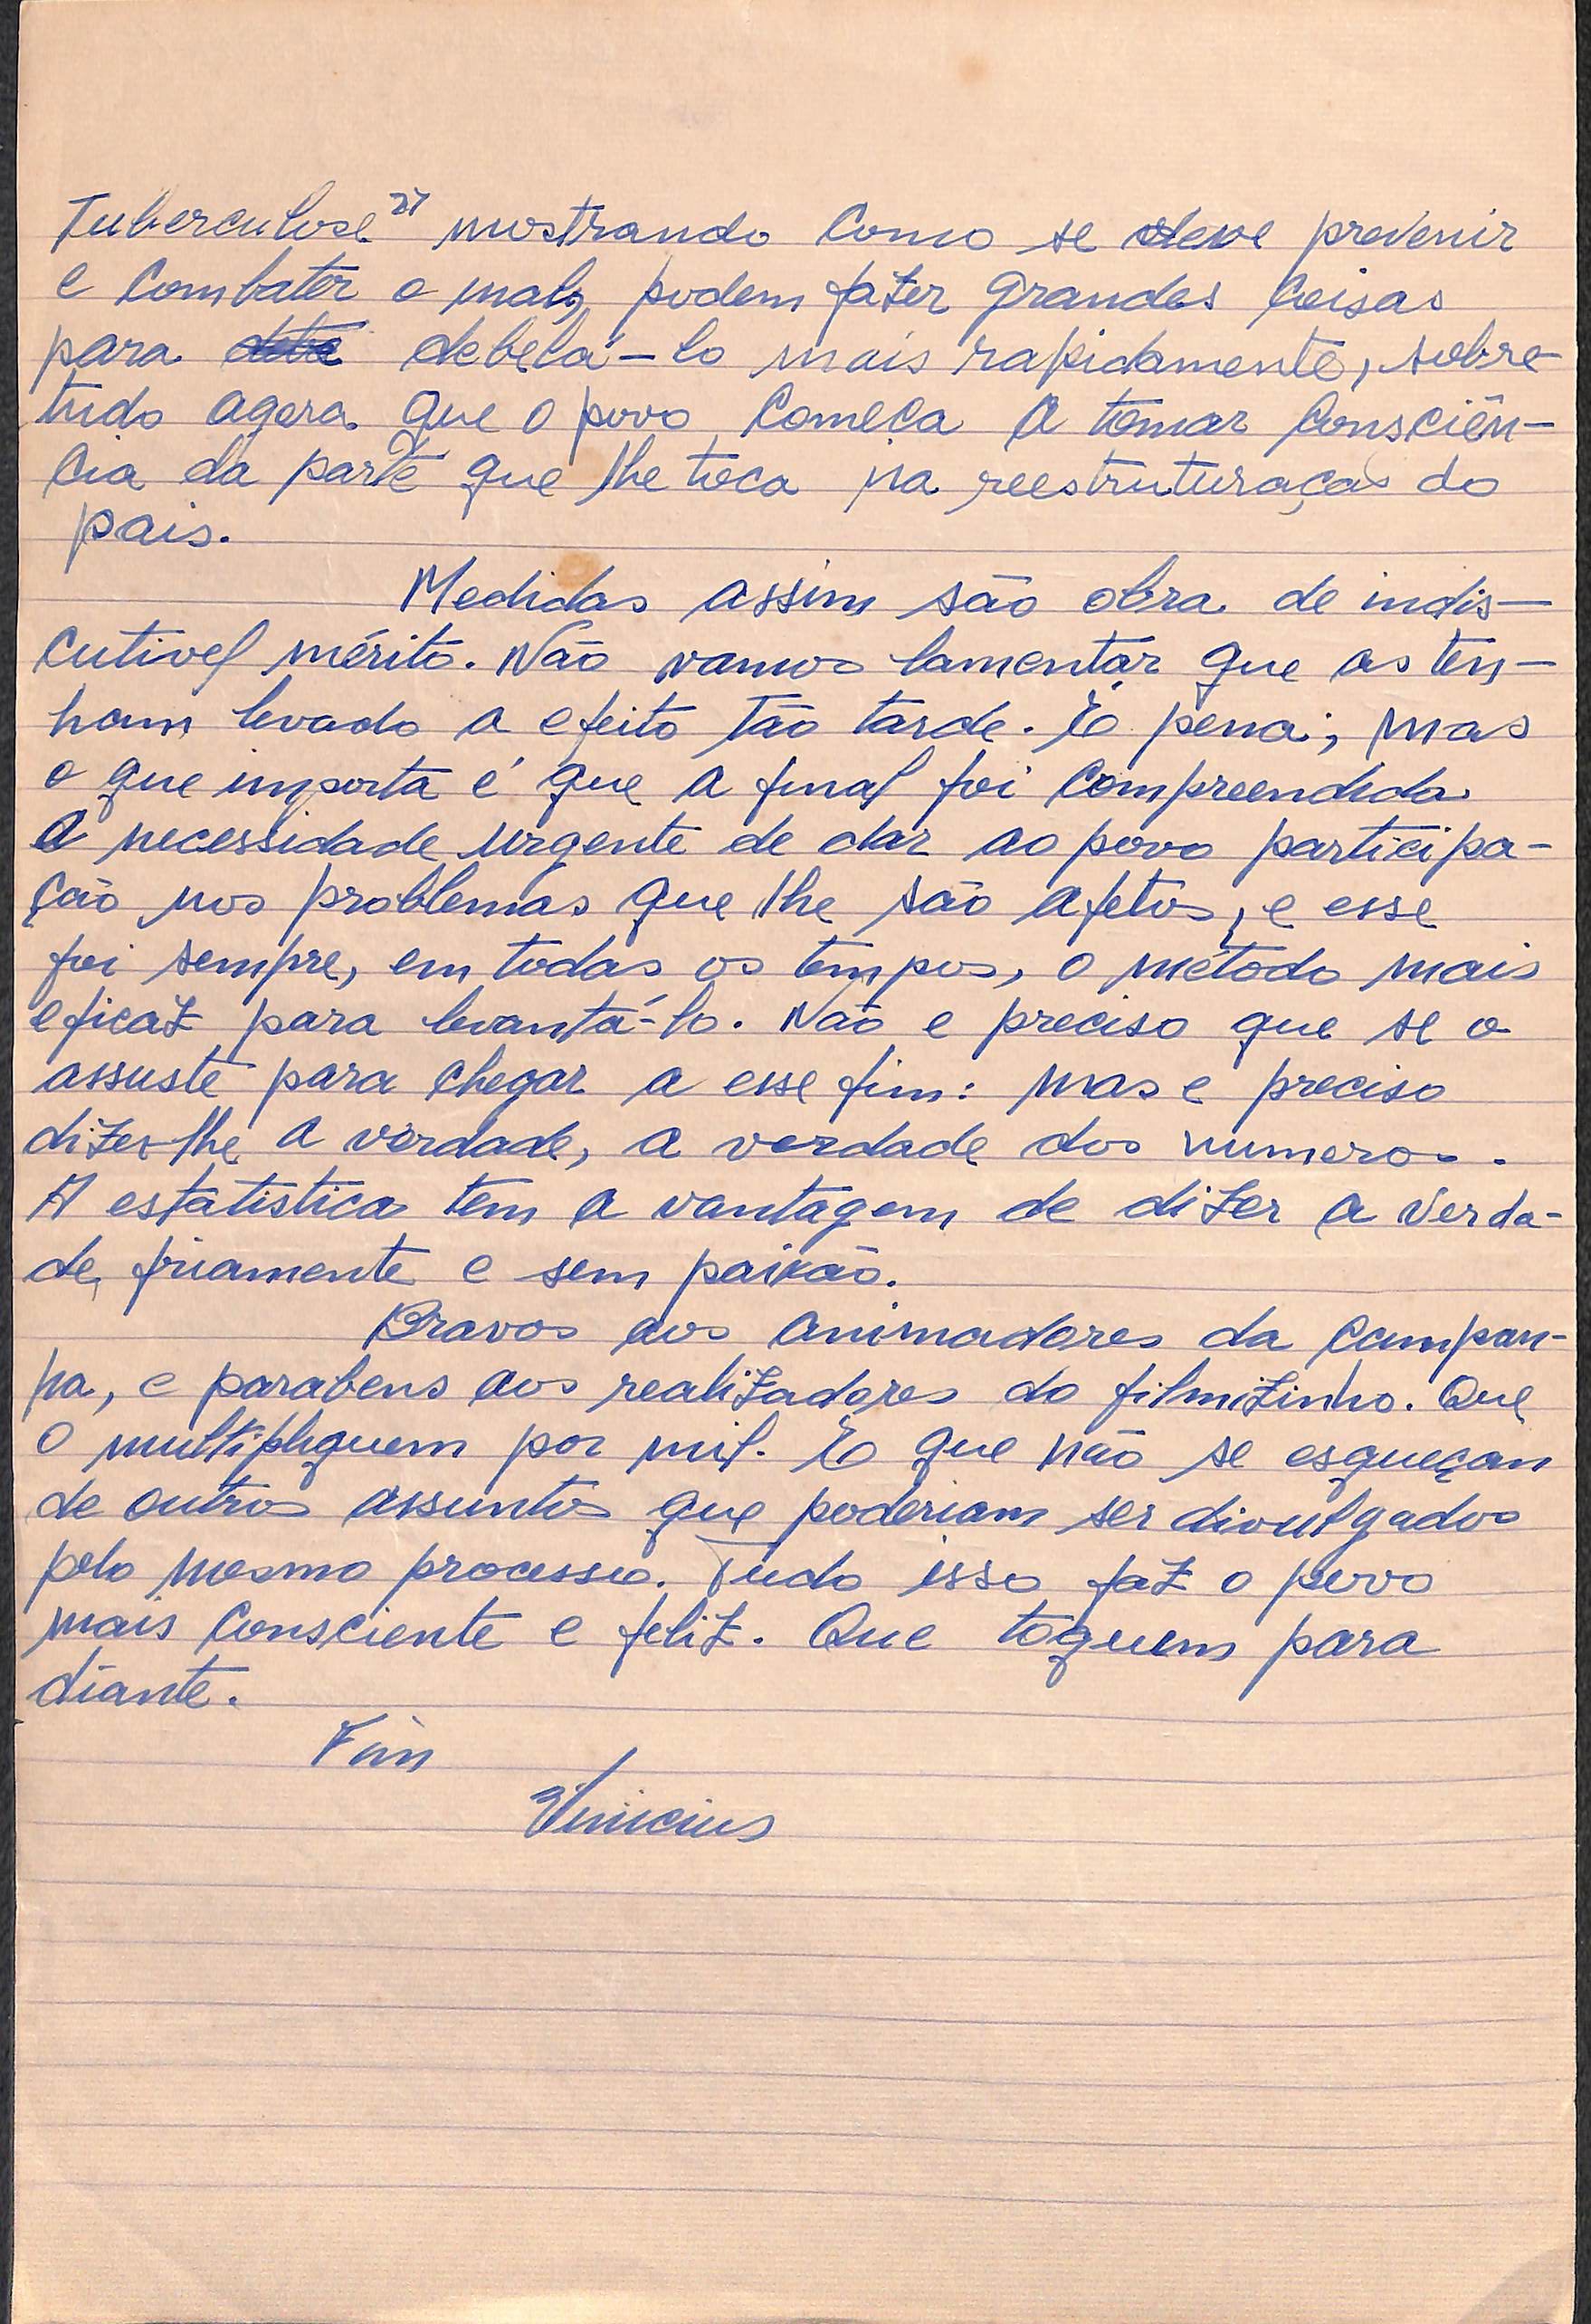 Tuberculose" mostrando como se deve prevenir
e combater o mal, podem fazer grandes coisas
para debelá-lo mais rapidamente, sobre-
tudo agora que o povo começa a tomar consciên-
cia da parte que lhe toca na reestruturação do
pais.
Medidas assim são obra de indis-
cutivel mérito. Não vamos lamentar que as ten-
ham levado a efeito tão tarde. É pena; mas
o que importa é que a final foi compreendida
a necessidade urgente de dar ao povo participa-
ção nos problemas que lhe são afetos, e esse
foi sempre, em todos os tempos, o método mais
eficaz para levantá-lo. Não e preciso que se o
assuste para chegar a esse fim: mas e preciso
dizer-lhe a verdade, a verdade dos numeros.
A estatistica tem a vantagem de dizer a verda-
de, friamente e sem paixão.
Bravos aos animadores da campan-
ha, e parabens aos realizadores do filmizinho. Que
o multipliquem por mil. E que não se esqueçam
de outros assuntos que poderiam ser divulgados
pelo mesmo processo. Tudo isso faz o povo
mais consciente e feliz. Que toquem para
diante.
Fim
Vinicius